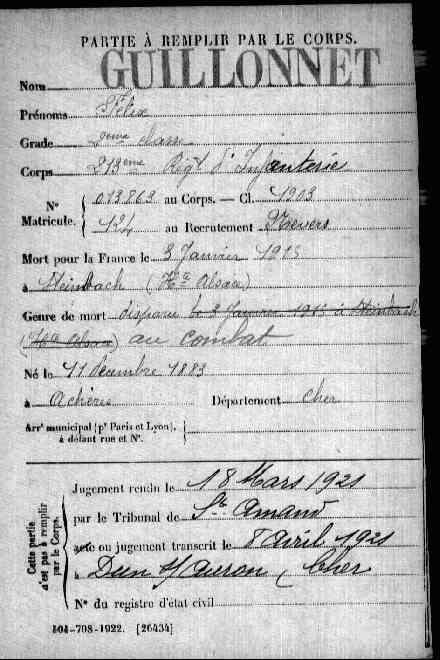 PARTIE À REMPLIR PAR LE CORPS.
GUILLONNET
Nom
Prénoms Félix
Grade 2ème classe
Corps 213ème Régt d'Infanterie
N° 013863 au Corps. — Cl. 1903
Matricule. 134 au Recrutement Nevers
Mort pour la France le 3 Janvier 1915
à Steinbach (Hte Alsace)
Genre de mort disparu le 3 Janvier 1915 à Steinbach
(Hte Alsace) au combat
Né le 11 décembre 1883
à Achères Département Cher
Arrt municipal (pr Paris et Lyon),
à défaut rue et N°.
Cette partie n'est pas à remplir par le Corps.
Jugement rendu le 18 Mars 1921
par le Tribunal de St Amand
acte ou jugement transcrit le 8 avril 1921
à Dun s/ Auron (Cher
N° du registre d'état civil
101-708-1922. [26434]